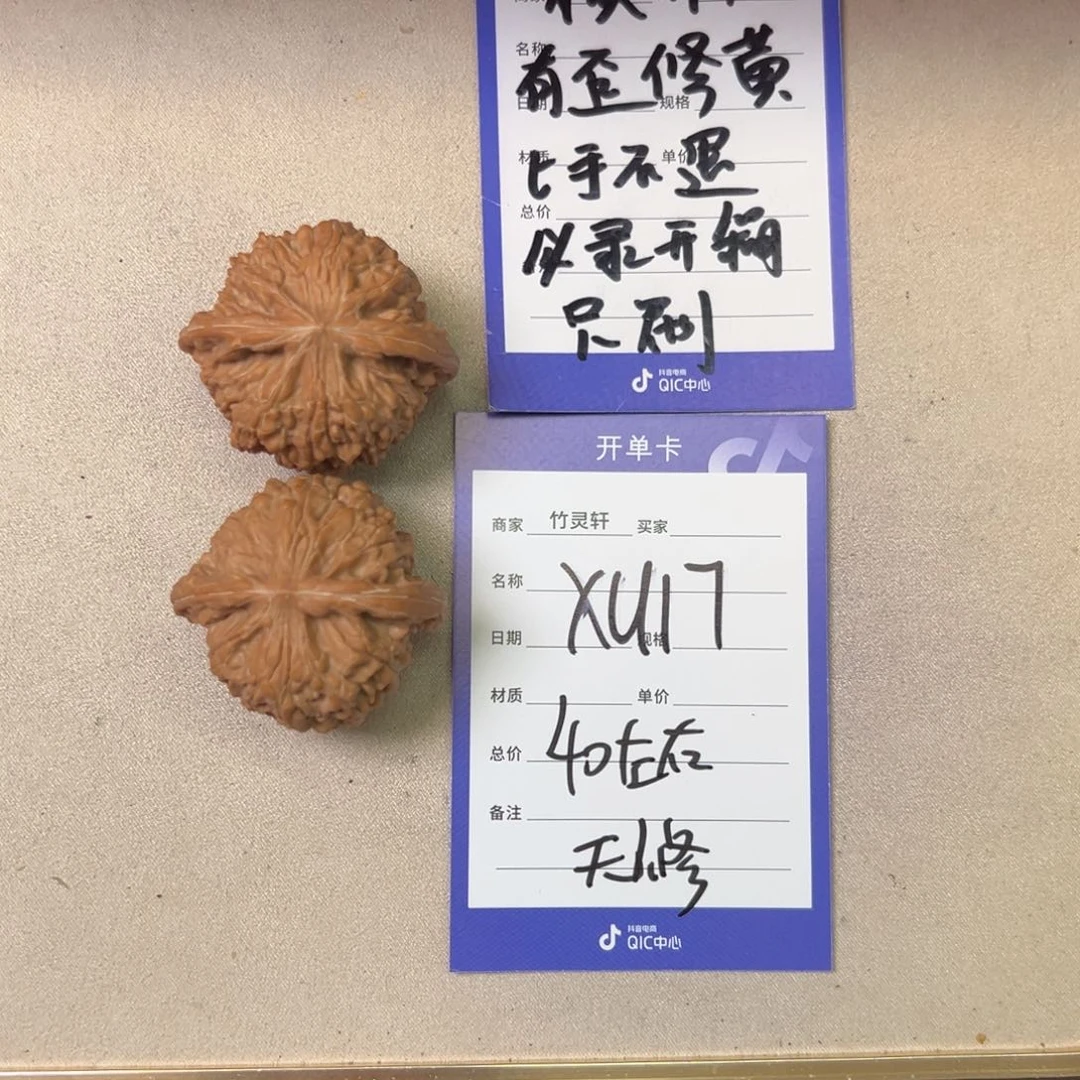 名称
有歪修黄
日期 规格
材质 单价
上手不退
总价
必录开箱
只刷
抖音电商
QIC中心
开单卡
商家 竹灵轩 买家
名称
XU17
日期 规格
材质 单价
总价 40左右
备注
天修
抖音电商
QIC中心